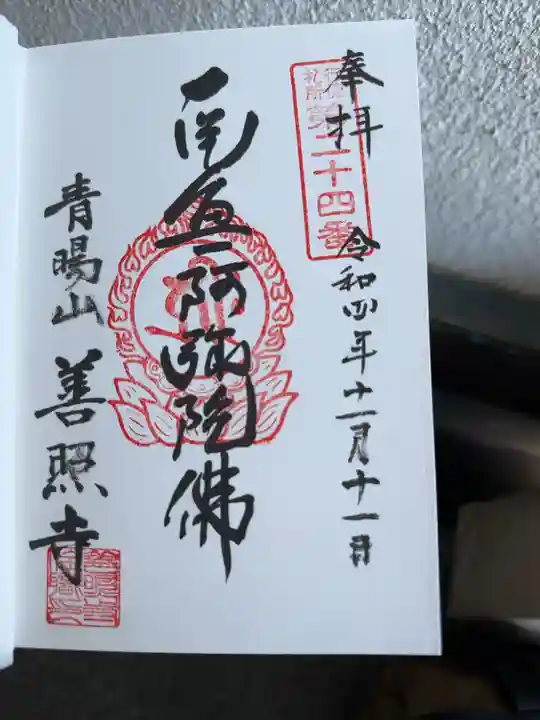 奉拝
札所
第二十四番
令和四年十一月十一日
南無阿弥陀佛
青陽山
善照寺